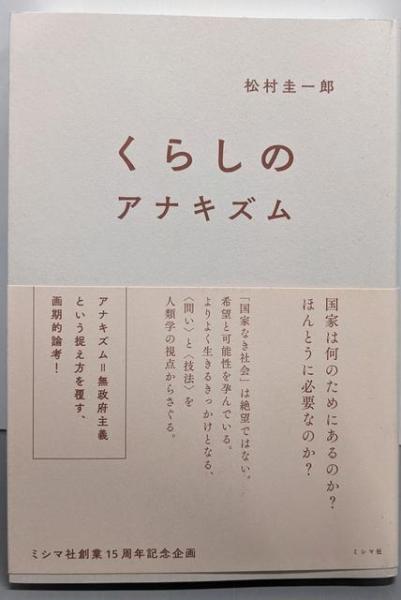 松村圭一郎
くらしの
アナキズム
国家は何のためにあるのか?
ほんとうに必要なのか?
「国家なき社会」は絶望ではない。
希望と可能性を孕んでいる。
よりよく生きるきっかけとなる、
〈問い〉と〈技法〉を
人類学の視点からさぐる。
アナキズム＝無政府主義
という捉え方を覆す、
画期的論考！
ミシマ社創業15周年記念企画
ミシマ社